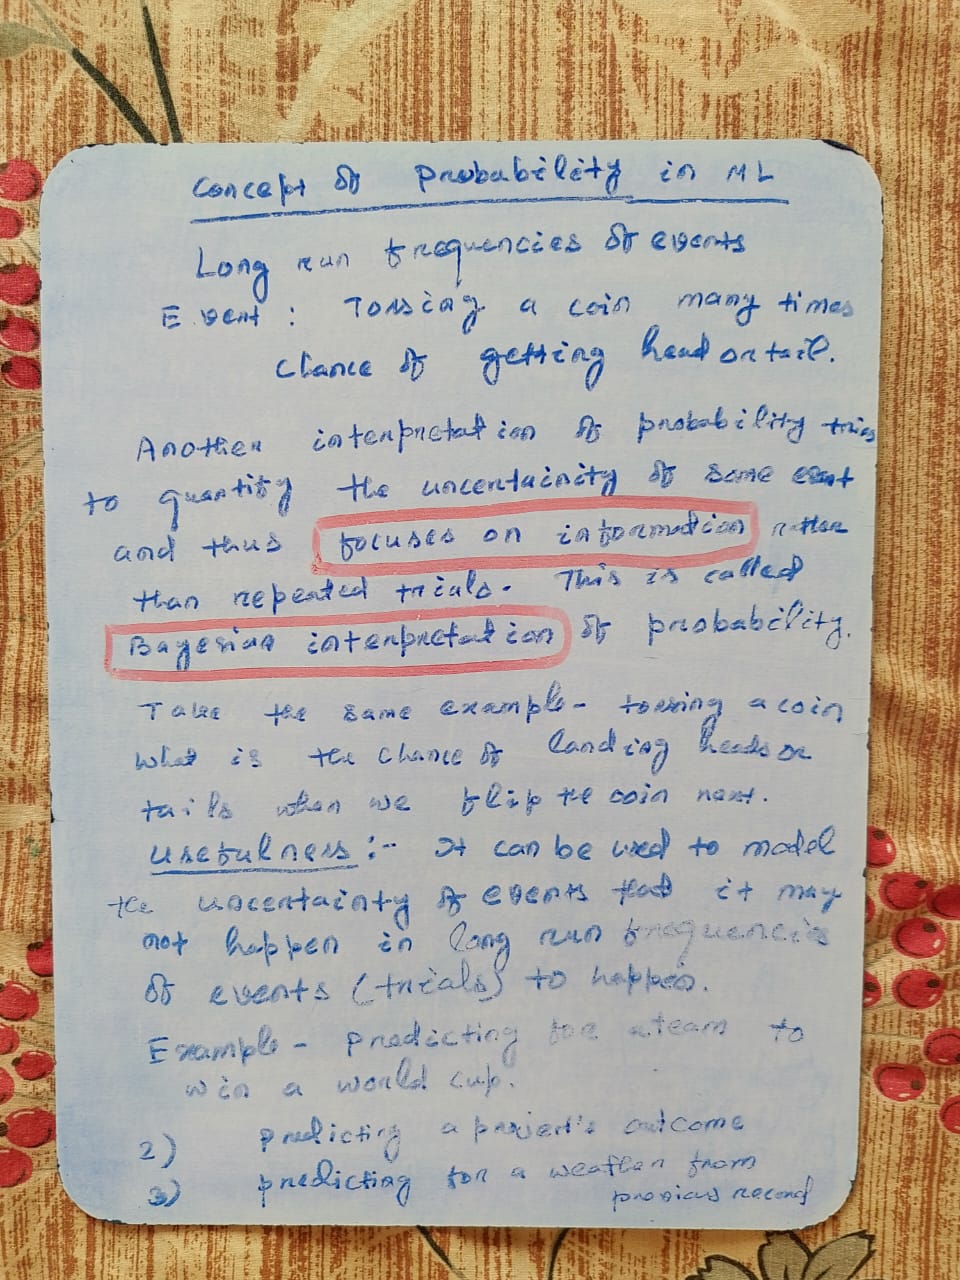 Concept of probability in ML
Long run frequencies of events
Event : Tossing a coin many times
chance of getting head or tail.
Another interpretation of probability tries
to quantify the uncertainity of some event
and thus focuses on information rather
than repeated trials. This is called
Bayesian interpretation of probability.
Take the same example - tossing a coin
what is the chance of landing heads or
tails when we flip the coin next.
Usefulness :- It can be used to model
the uncertainty of events that it may
not happen in long run frequencies
of events (trials) to happen.
Example - predicting for a team to
win a world cup.
2) predicting a project's outcome
3) predicting for a weather from
previous record